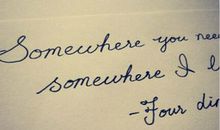 Somewhere you nee
somewhere I l
-Four din